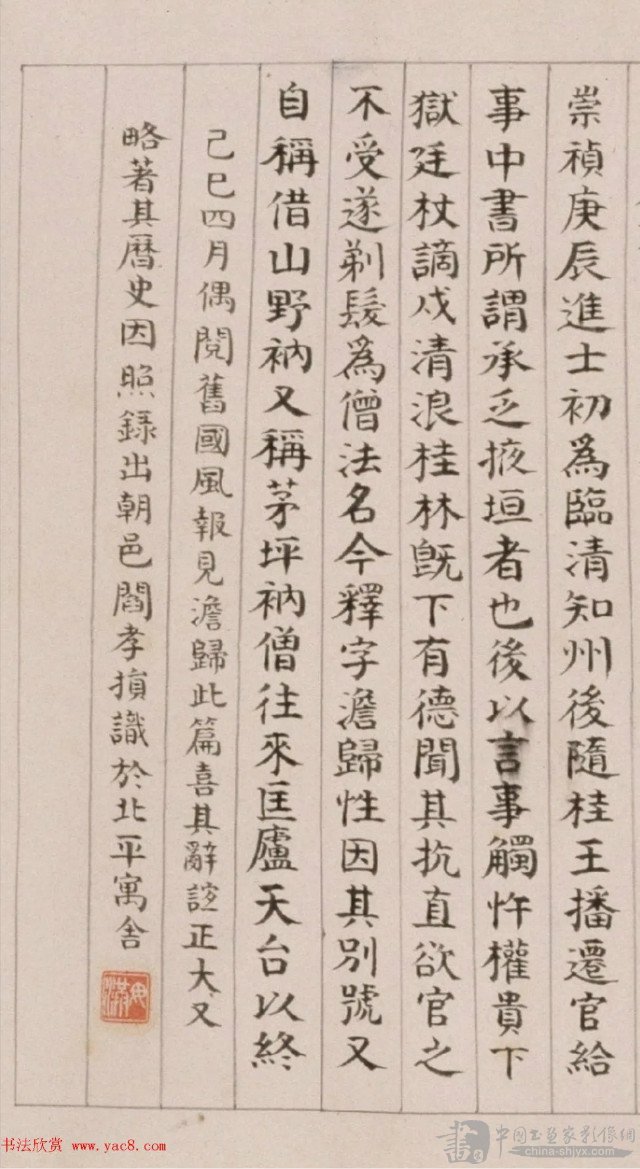 崇禎庚辰進士初為臨清知州後隨桂王播遷官給
事中書所謂承乏掖垣者也後以言事觸忤權貴下
獄廷杖謫戍清浪桂林既下有德聞其抗直欲官之
不受遂剃髮為僧法名今釋字澹歸性因其別號又
自稱借山野衲又稱茅坪衲僧往來匡廬天台以終
己巳四月偶閱舊國風報見澹歸此篇喜其辭誼正大又
略著其曆史因照錄出朝邑閻孝摃識於北平寓舍
书法欣赏 www.yac8.com
中国书画家影像網
china-shjyx.com